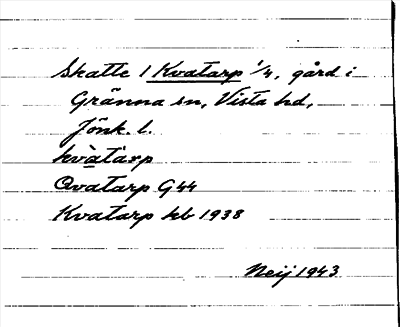 Skatte 1 Kvatarp 1/4, gård i
Gränna sn, Vista hd,
Jönk. l.
kvàtàrp
Qvatarp G44
Kvatarp kb 1938
Neij 1943